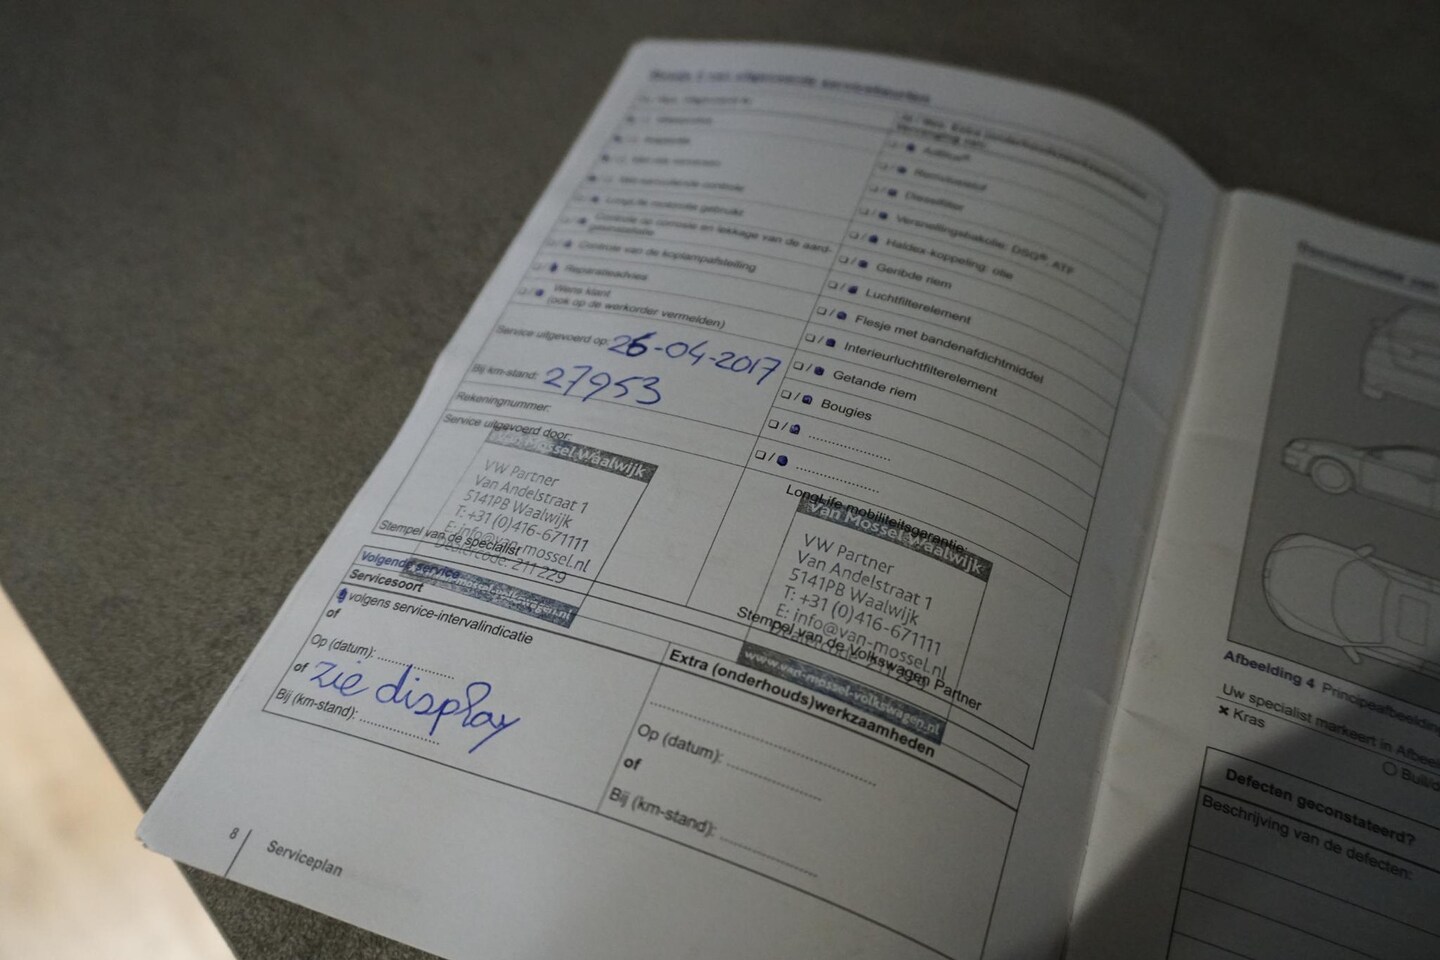 uitgevoerde servicebeurten
Controle op corrosie en lekkage van de aard-
Controle van de koplampafstelling
Reparatieadvies
Wens klant
(ook op de werkorder vermelden)
Service uitgevoerd op: 26-04-2017
Bij km-stand: 27953
Rekeningnummer:
Service uitgevoerd door:
Mossel Waalwijk
VW Partner
Van Andelstraat 1
5141PB Waalwijk
T: +31 (0)416-671111
E: info@van-mossel.nl
Dealercode: 211 229
Stempel van de specialist
AdBlue®
Remvloeistof
Dieselfilter
Versnellingsbakolie: DSG®, ATF
❏ / Haldex-koppeling: olie
❏ / Geribde riem
❏ / Luchtfilterelement
❏ / Flesje met bandenafdichtmiddel
❏ / Interieurluchtfilterelement
❏ / Getande riem
❏ / Bougies
❏ / ....................
❏ / ....................
LongLife-mobiliteitsgarantie:
Van Mossel Waalwijk
VW Partner
Van Andelstraat 1
5141PB Waalwijk
T: +31 (0)416-671111
E: info@van-mossel.nl
Stempel van de Volkswagen Partner
www.van-mossel-volkswagen.nl
Volgende service
Servicesoort
volgens service-intervalindicatie
of
Op (datum): ....................
of zie display
Bij (km-stand): ....................
Extra (onderhouds)werkzaamheden
Op (datum): ....................
of
Bij (km-stand): ....................
8 Serviceplan
Afbeelding 4
Uw specialist markeert in
× Kras
Defecten geconstateerd?
Beschrijving van de defecten: